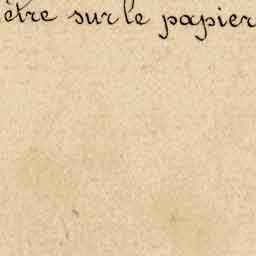 être sur le papier